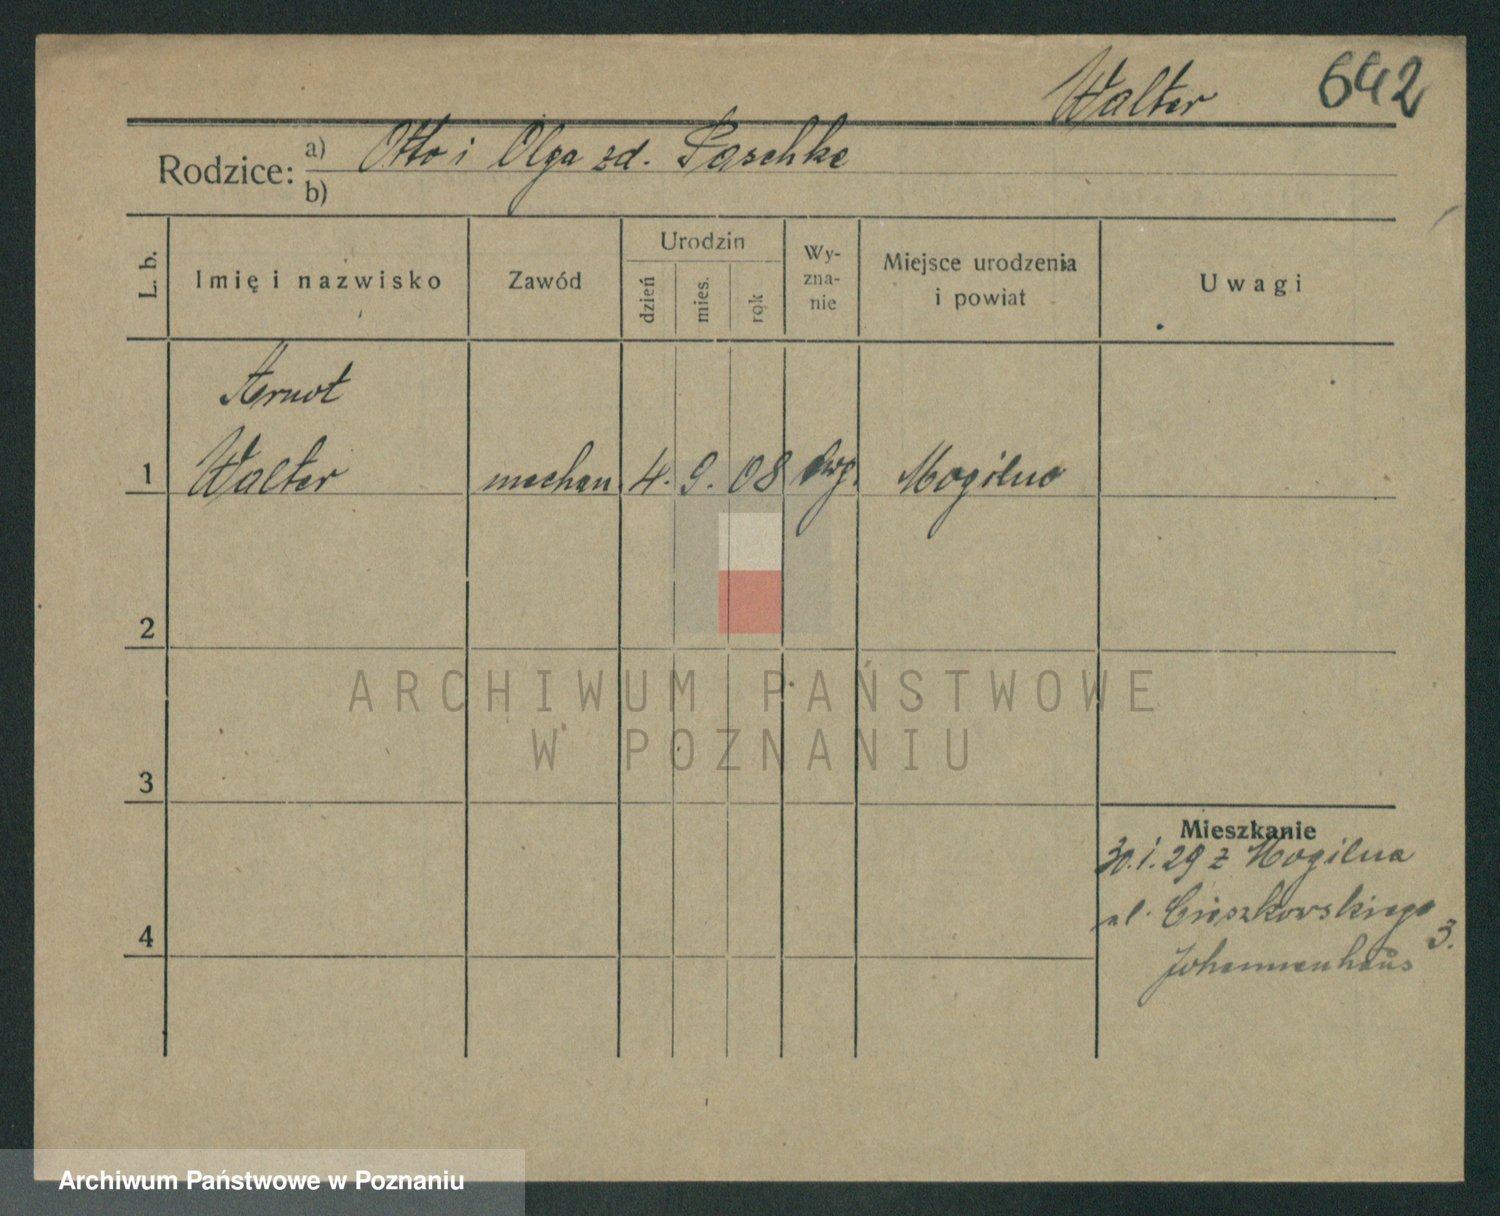 Walter 642
Rodzice: a) Otto i Olga zd. Paschke
b)
L. b. Imię i nazwisko Zawód Urodzin dzień mies. rok Wy-zna-nie Miejsce urodzenia i powiat Uwagi
Arnot
1 Walter mechan. 4. 9. 08 ewg. Mogilno
2
ARCHIWUM PAŃSTWOWE
W POZNANIU
3
Mieszkanie
30.1.29 z Mogilna
al. Cieszkowskiego 3.
4
Johannenhaus
Archiwum Państwowe w Poznaniu